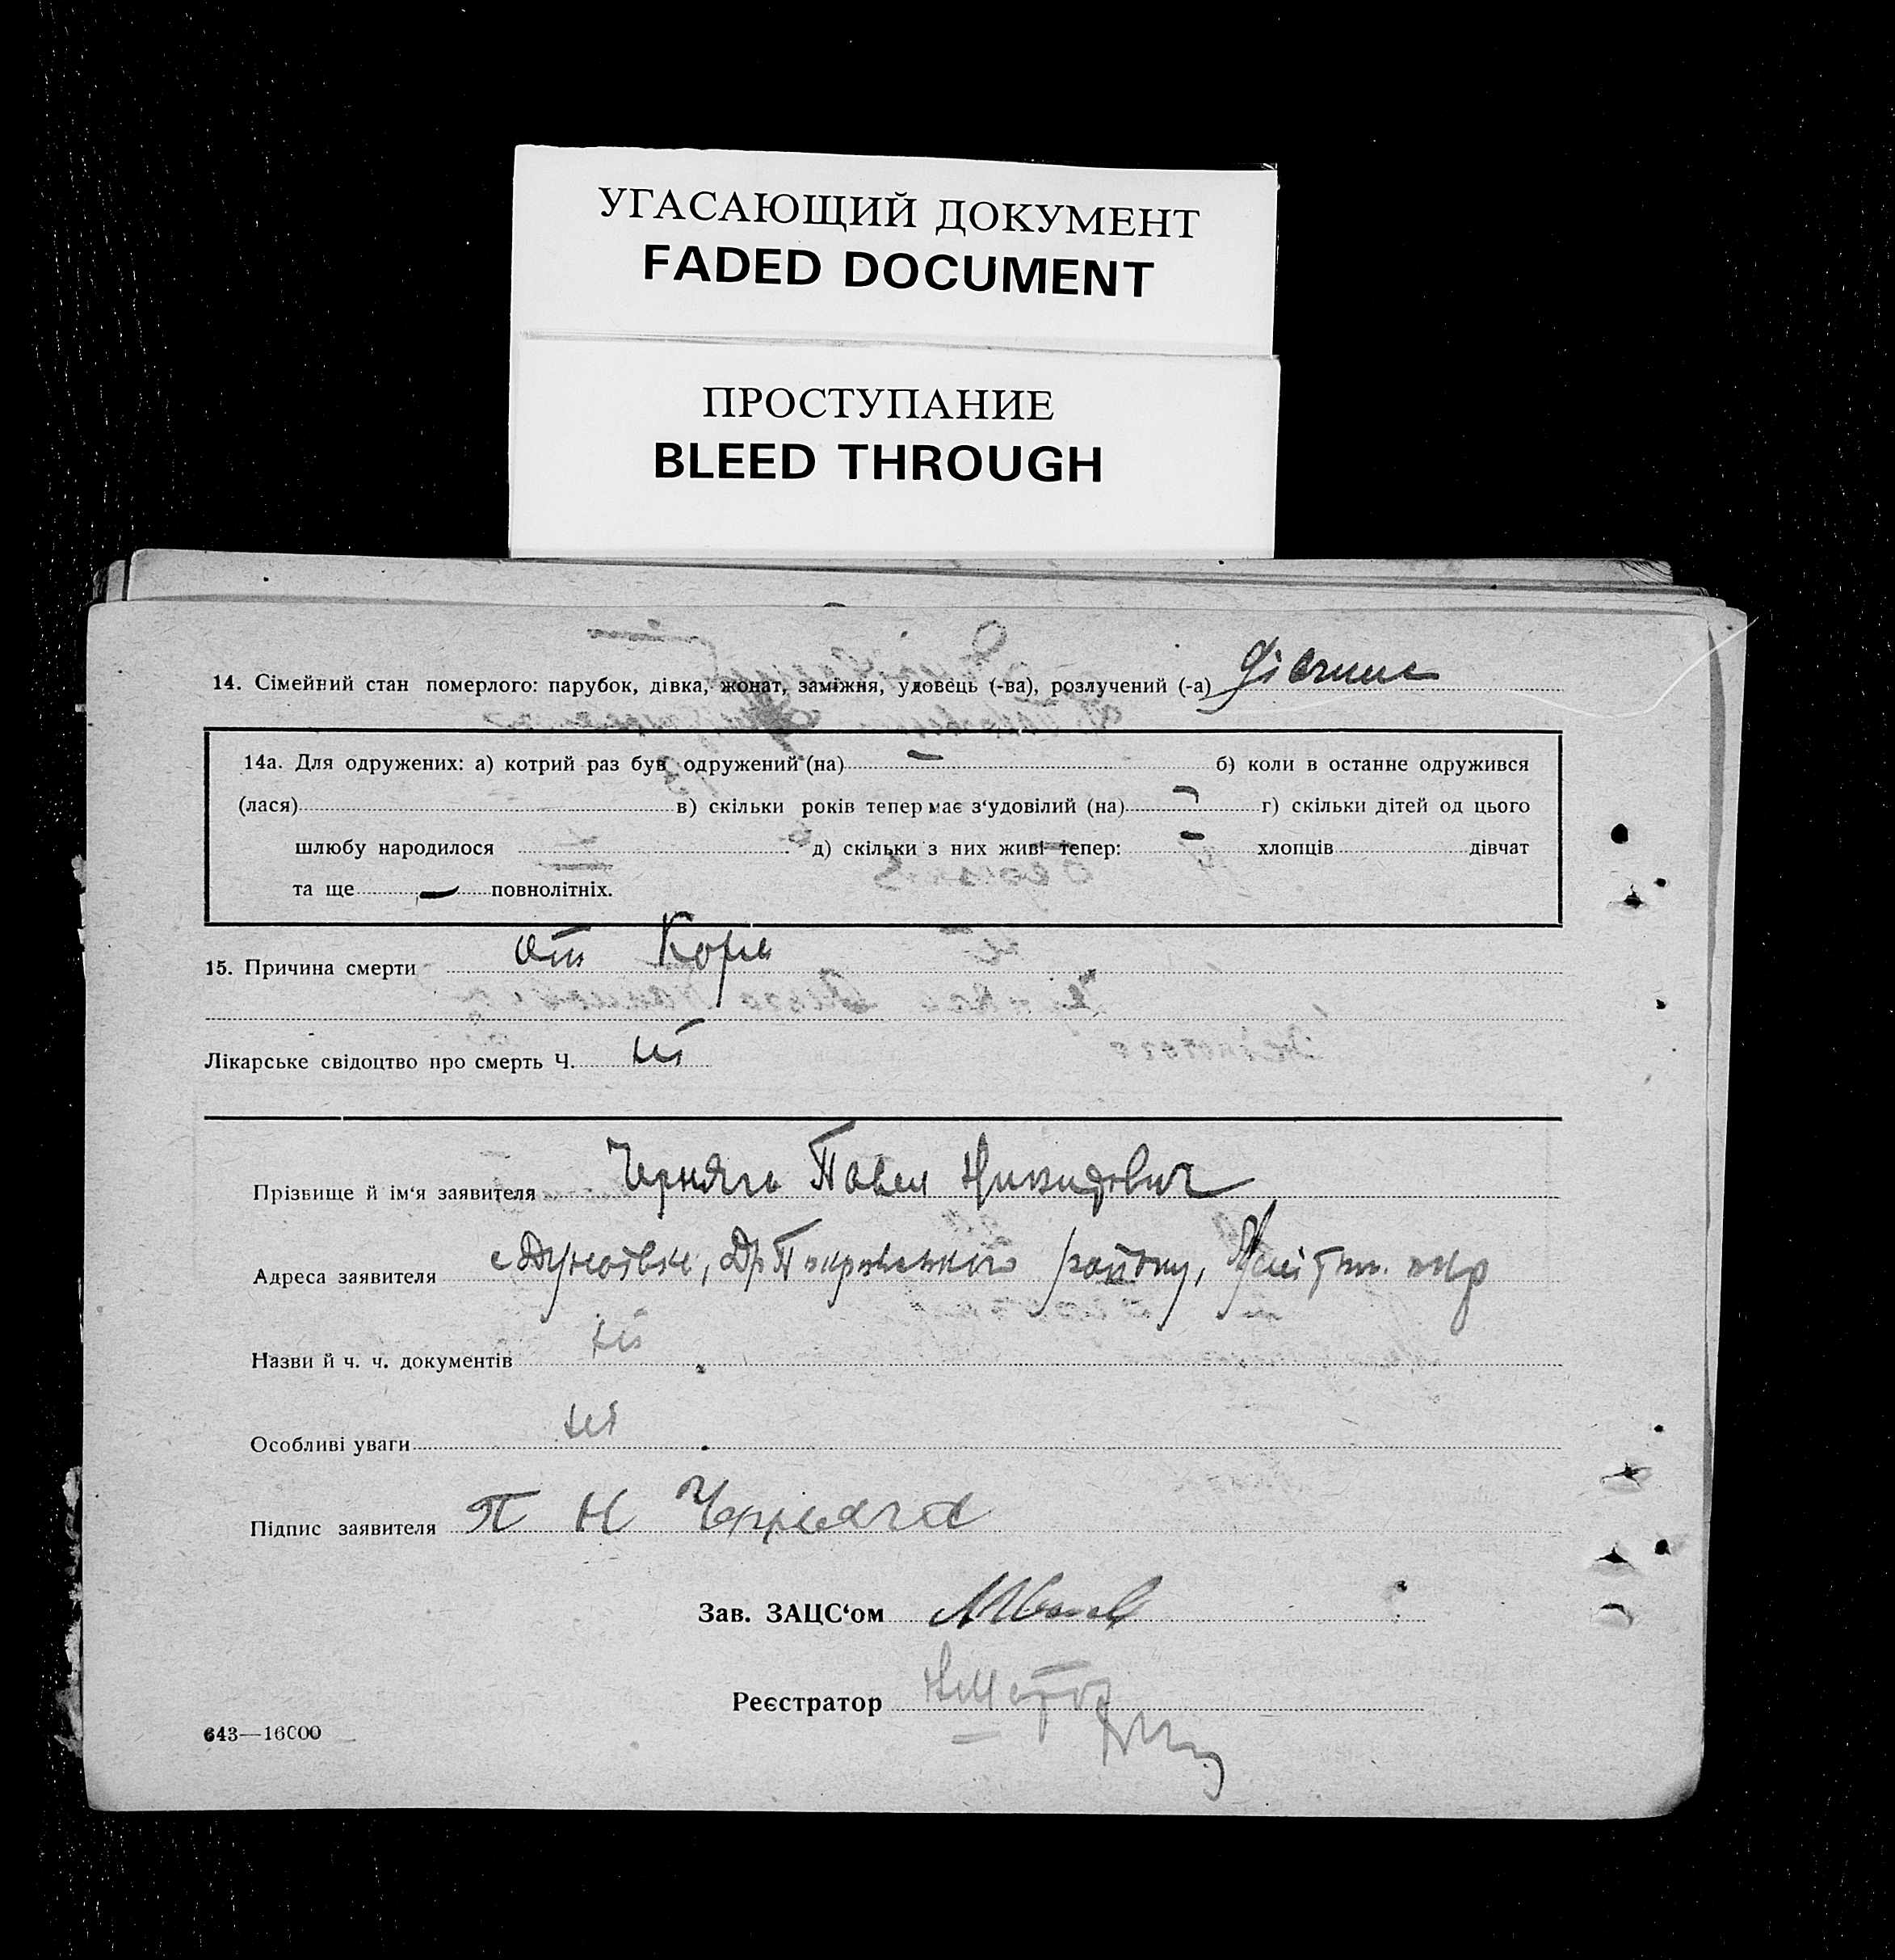 УГАСАЮЩИЙ ДОКУМЕНТ
FADED DOCUMENT
ПРОСТУПАНИЕ
BLEED THROUGH
14. Сімейний стан померлого: парубок, дівка, жонат, заміжня, удовець (-ва), розлучений (-а)
14а. Для одружених: а) котрий раз був одружений (на) — б) коли в останнє одружився
(лася) в) скільки років тепер має з‘удовілий (на) г) скільки дітей од цього
шлюбу народилося д) скільки з них живі тепер: — хлопців дівчат
та ще — повнолітніх.
15. Причина смерти от Кори
Лікарське свідоцтво про смерть Ч. ні
Прізвище й ім‘я заявителя Черняга Павел Никидович
Адреса заявителя району, окр
Назви й ч. ч. документів ні
Особливі уваги ні
Підпис заявителя П Н Черняга
Зав. ЗАЦС‘ом
Реєстратор
643—16000